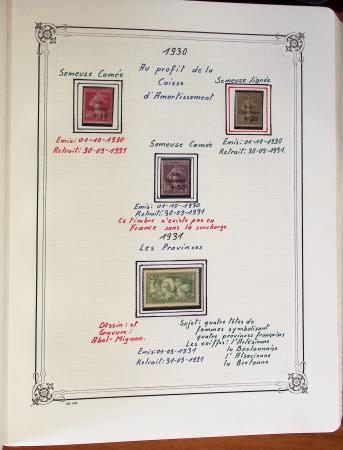 1930
Semeuse Camée
Au profit de la
Caisse
d'Amortissement
Semeuse lignée
Emis: 01-10-1930
Retrait: 30-09-1931
Emis: 01-10-1930
Retrait: 30-09-1931
Semeuse Camée
Emis: 01-10-1930
Retrait: 30-09-1931
Ce timbre n'existe pas en
France sans la surcharge
1931
Les Provinces
Dessin: et
Gravure:
Abel-Mignon.
Emis: 01-03-1931
Retrait: 31-03-1931
Sujet: quatre têtes de
femmes symbolisant
quatre provinces françaises
Les coiffes: l'Arlésienne
la Boulonnaise
l'Alsacienne
la Bretonne